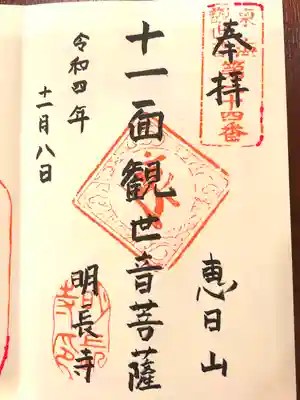 奉拝
恵日山
十一面観世音菩薩
明長寺
令和四年
十一月八日